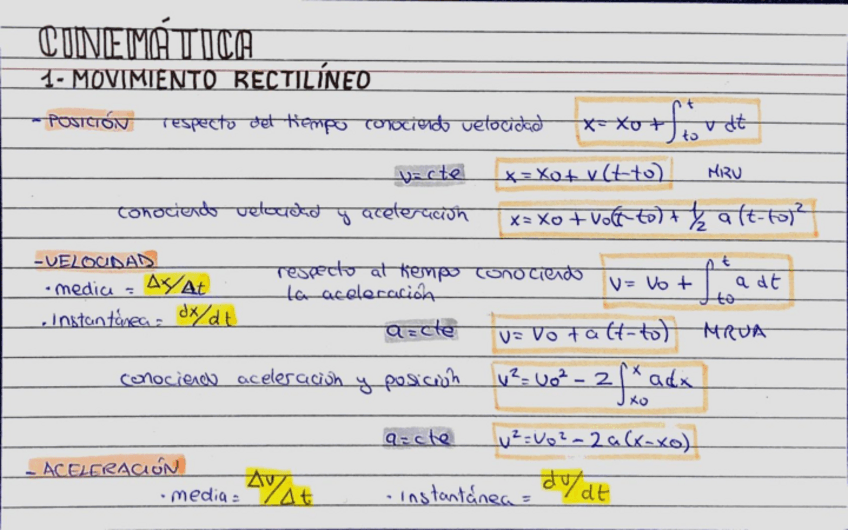 CINEMÁTICA
1- MOVIMIENTO RECTILÍNEO
- POSICIÓN respecto del tiempo conociendo velocidad x = x0 + ∫_{t0}^{t} v dt
v=cte x = x0 + v(t-t0) MRU
conociendo velocidad y aceleración x = x0 + v0(t-t0) + 1/2 a (t-t0)²
- VELOCIDAD
· media = Δx/Δt
· instantánea = dx/dt
respecto al tiempo conociendo
la aceleración
v = v0 + ∫_{t0}^{t} a dt
a=cte v = v0 + a (t-t0) MRUA
conociendo aceleración y posición v² = v0² - 2 ∫_{x0}^{x} a dx
a=cte v² = v0² - 2 a (x-x0)
- ACELERACIÓN
· media = Δv/Δt · instantánea = dv/dt